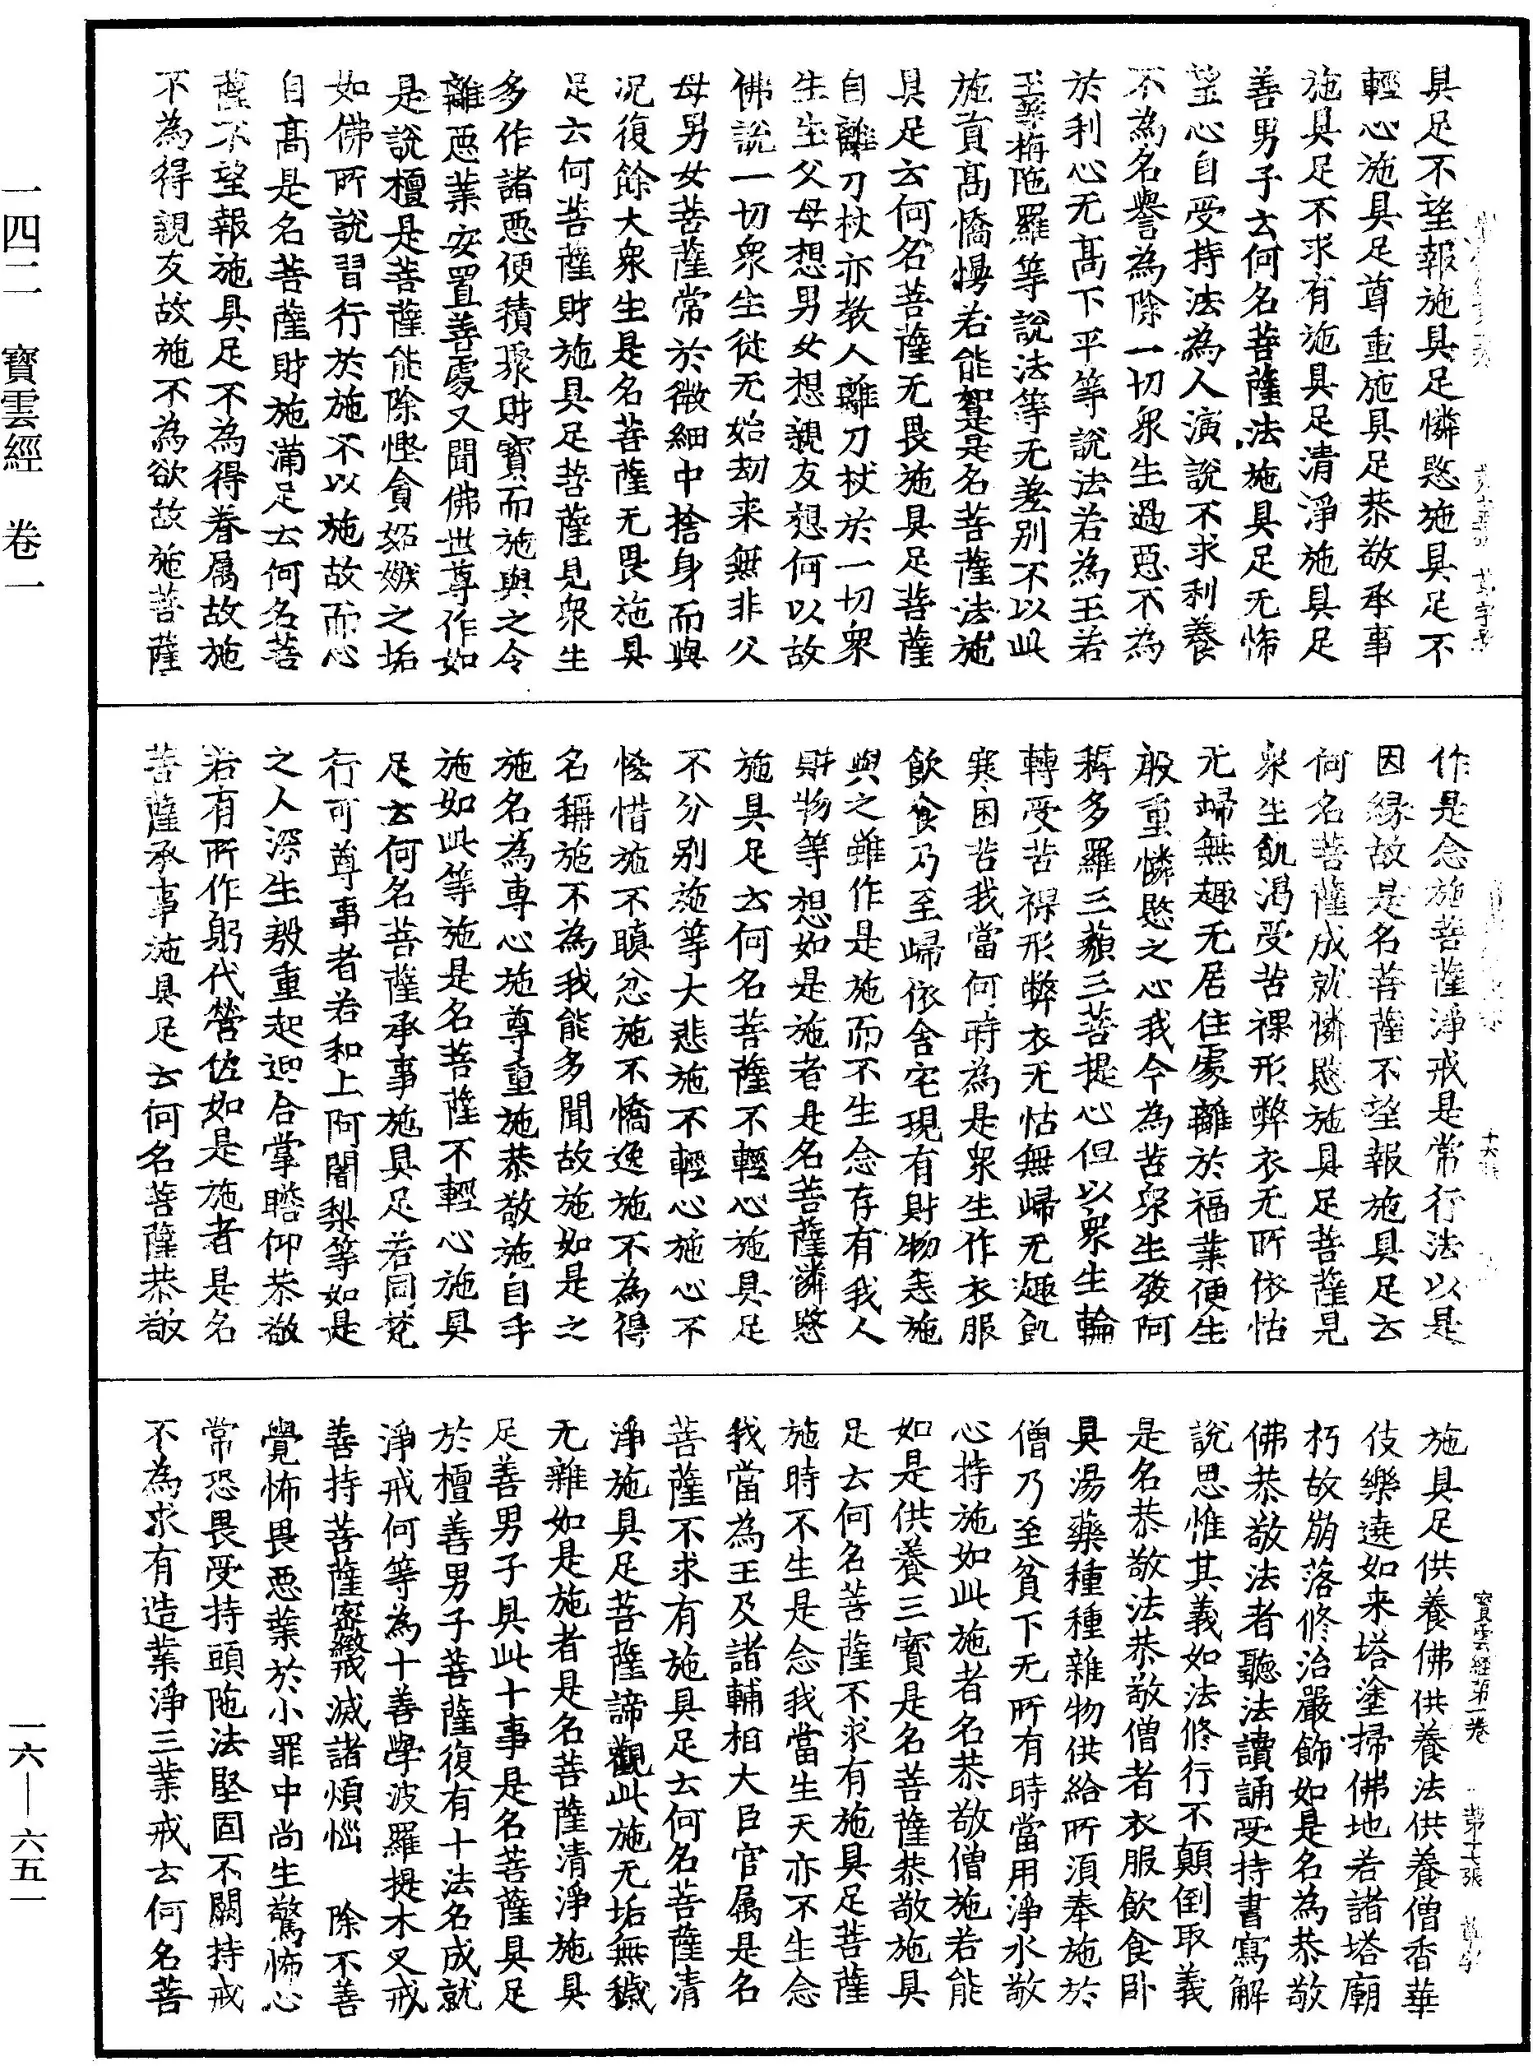 具足不望報施具足憐愍施具足不
輕心施具足尊重施具足恭敬承事
施具足不求有施具足清淨施具足
善男子云何名菩薩法施具足无悕
望心自受持法為人演說不求利養
不為名譽為除一切衆生過惡不為
於利心无髙下平等說法若為王若
王等栴陁羅等說法等无差别不以此
施貢髙憍慢若能如是是名菩薩法施
具足云何名菩薩无畏施具足菩薩
自離刀杖亦教人離刀杖於一切衆
生生父母想男女想親友想何以故
佛說一切衆生從无始劫来無非父
母男女菩薩常於微細中捨身而與
況復餘大衆生是名菩薩无畏施具
足云何菩薩財施具足菩薩見衆生
多作諸惡便積聚財寶而施與之令
離惡業安置善處又聞佛世尊作如
是說檀是菩薩能除慳貪妬嫉之垢
如佛所說習行於施不以施故而心
自髙是名菩薩財施滿足云何名菩
薩不望報施具足不為得眷属故施
不為得親友故施不為欲故施菩薩
作是念施菩薩淨戒是常行法以是
因縁故是名菩薩不望報施具足云
何名菩薩成就憐愍施具足菩薩見
衆生飢渴受苦裸形弊衣无所依怙
无歸無趣无居住處離於福業便生
般重憐愍之心我今為苦衆生發阿
耨多羅三藐三菩提心但以衆生輪
轉受苦裸形弊衣无怙無歸无趣飢
寒困苦我當何時為是衆生作衣服
飲食乃至歸依舍宅現有財物悉施
與之雖作是施而不生念存有我人
財物等想如是施者是名菩薩憐愍
施具足云何名菩薩不輕心施具足
不分别施等大悲施不輕心施心不
悋惜施不瞋忿施不憍逸施不為得
名稱施不為我能多聞故施如是之
施名為專心施尊重施恭敬施自手
施如此等施是名菩薩不輕心施具
足云何名菩薩承事施具足若同梵
行可尊事者若和上阿闍梨等如是
之人深生敬重起迎合掌瞻仰恭敬
若有所作躬代營佐如是施者是名
菩薩承事施具足云何名菩薩恭敬
施具足供養佛供養法供養僧香華
伎樂遶如来塔塗掃佛地若諸塔廟
朽故崩落修治嚴飾如是名為恭敬
佛恭敬法者聽法讀誦受持書寫解
說思惟其義如法修行不顛倒取義
是名恭敬法恭敬僧者衣服飲食卧
具湯藥種種雜物供給所須奉施於
僧乃至貧下无所有時當用淨水敬
心持施如此施者名恭敬僧施若能
如是供養三寶是名菩薩恭敬施具
足云何名菩薩不求有施具足菩薩
施時不生是念我當生天亦不生念
我當為王及諸輔相大臣官属是名
菩薩不求有施具足云何名菩薩清
淨施具足菩薩諦觀此施无垢無穢
无雜如是施者是名菩薩清淨施具
足善男子具此十事是名菩薩具足
於檀善男子菩薩復有十法名成就
淨戒何等為十善學波羅提木叉戒
善持菩薩密緻戒滅諸煩惱 除不善
覺怖畏惡業於小罪中尚生驚怖心
常恐畏受持頭陁法堅固不闕持戒
不為求有造業淨三業戒云何名菩
寶雲經第一卷 第十七張 草字
一四二 寶雲經 卷一
一六—六五一